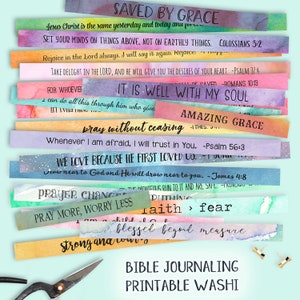 SAVED BY GRACE
Jesus Christ is the same yesterday and today and
SET YOUR MINDS ON THINGS ABOVE, NOT ON EARTHLY THINGS. COLOSSIANS 3:2
Rejoice in the Lord always. I will say it again: Rejoice!
TAKE DELIGHT IN THE LORD, AND HE WILL GIVE YOU THE DESIRES OF YOUR HEART. -PSALM 37:4
FOR WHOEVER
IT IS WELL WITH MY SOUL
I can do all this through him who
AMAZING GRACE
pray without ceasing
Whenever I am afraid, I will trust in You. -Psalm 56:3
WE LOVE BECAUSE HE FIRST LOVED US.
Draw near to God and He will draw near to you. - James 4:8
PRAYER CHANGES
PRAY MORE, WORRY LESS
faith > fear
blessed beyond measure
strong and
BIBLE JOURNALING
PRINTABLE WASHI